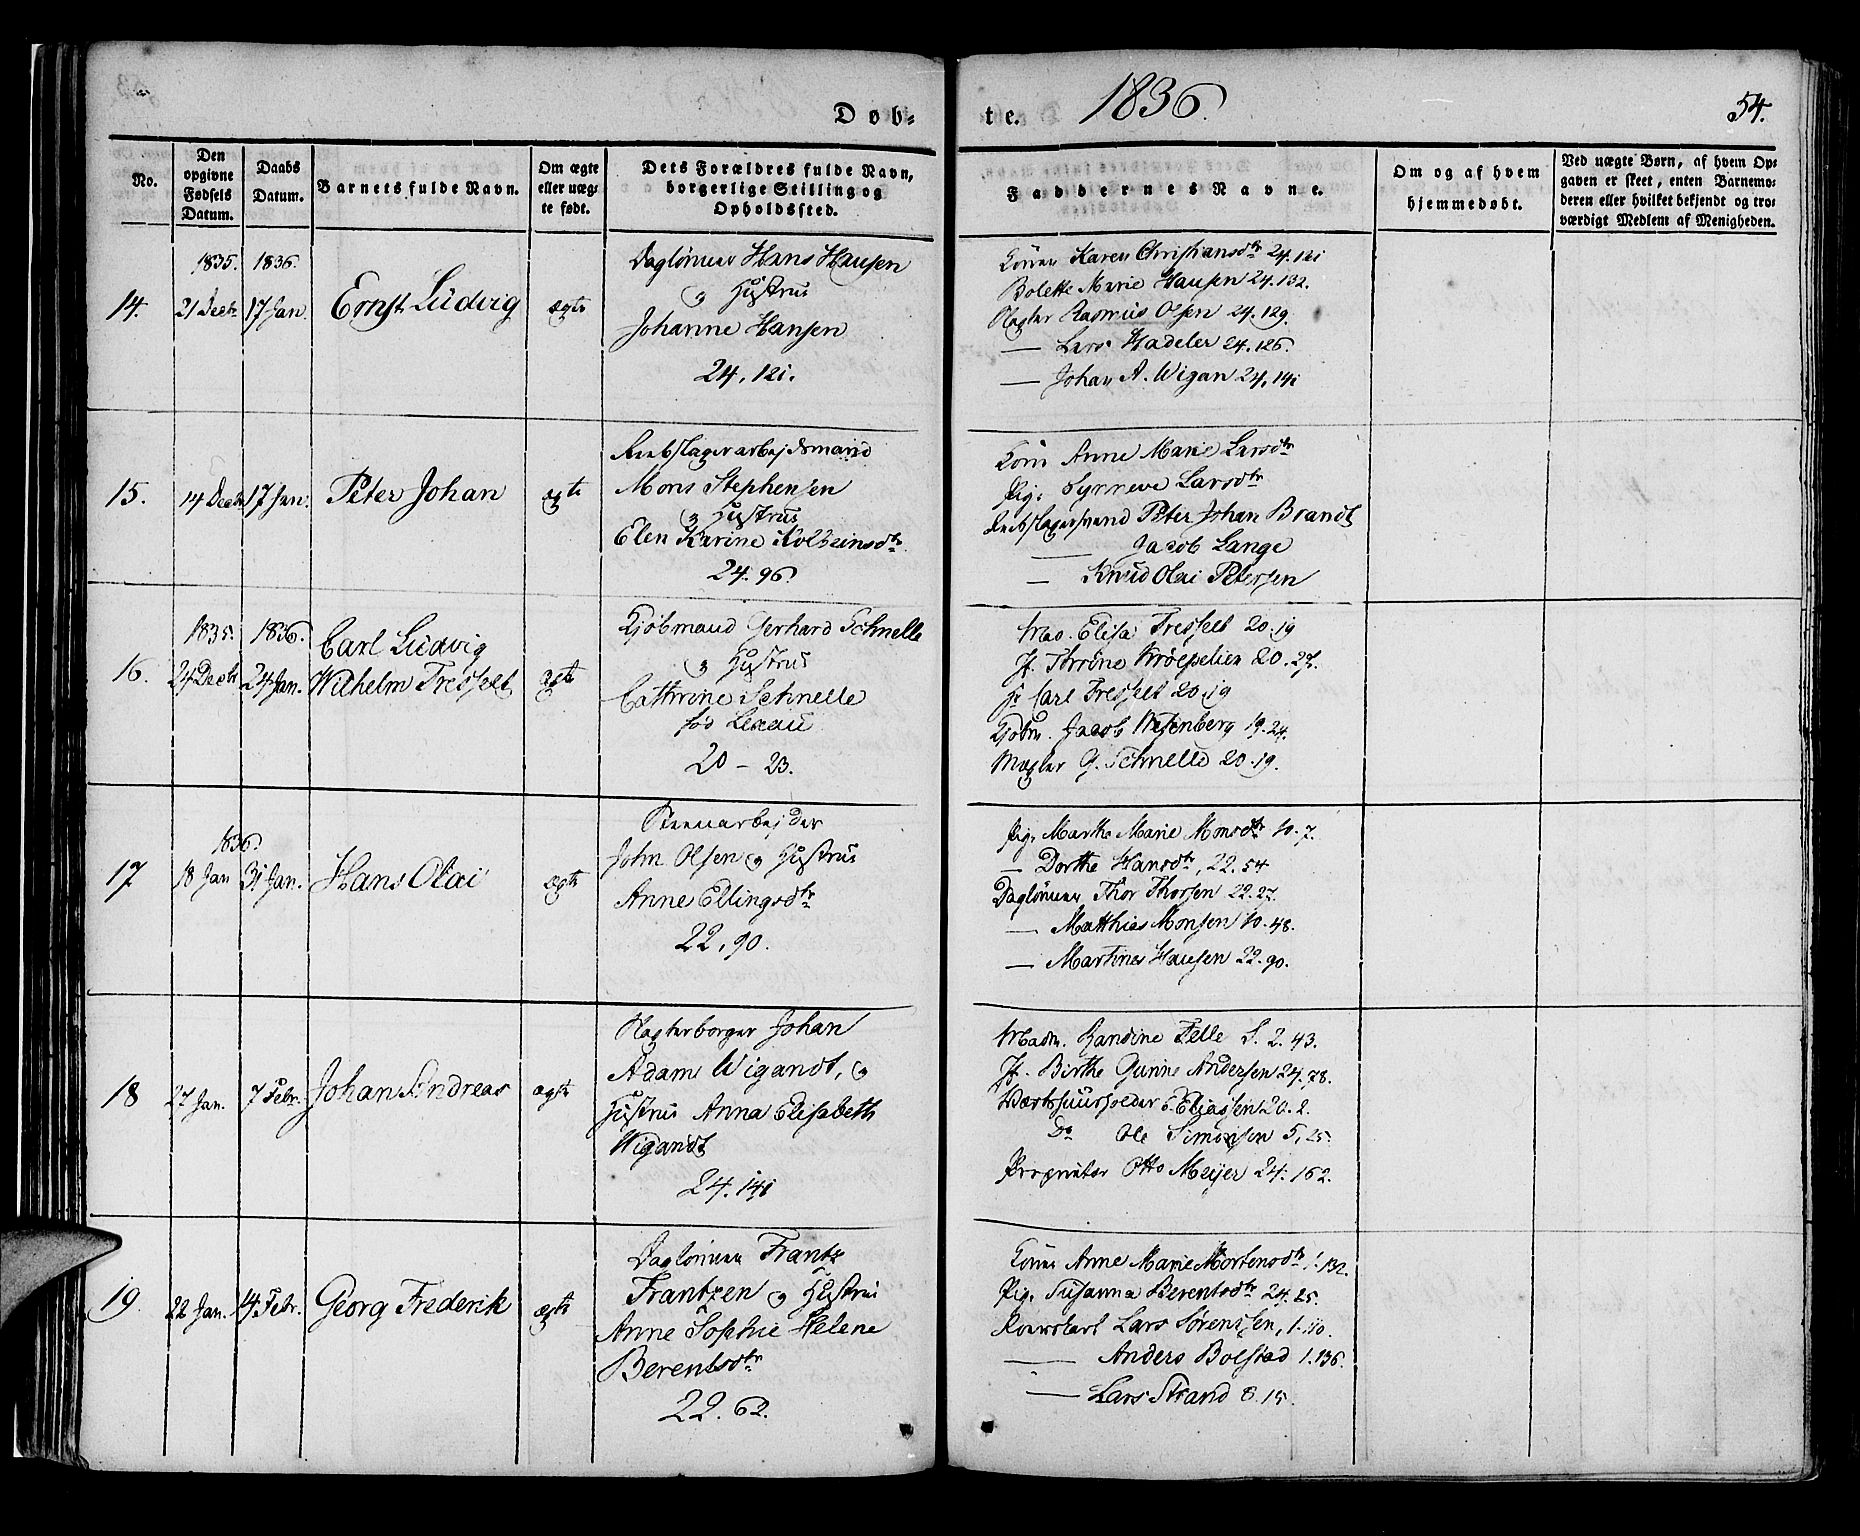 Døb-
te. 1836. 54.
No.
Den opgivne Fødsels Datum.
Daabs Datum.
Barnets fulde Navn.
Om ægte eller uæg- te født.
Dets Forældres fulde Navn, borgerlige Stilling og Opholdssted.
Faddernes Navne.
Om og af hvem hjemmedøbt.
Ved uægte Børn, af hvem Op- gaven er skeet, enten Barnemo- deren eller hvilket bekjendt og tro- værdigt Medlem af Menigheden.
1835. 1836.
14. 21 Decbr 17 Jan. Ernst Ludvig ægte
Daglønner Hans Hansen
og Hustrue
Johanne Hansen
24, 121.
Kone Karen Christiansdtr 24.121
Bolette Marie Hansen 24.132.
Rasmus Olsen 24.129.
— Lars Hadeler 24.126.
— Johan A. Wigan 24.141
15. 14 Decbr 17 Jan. Peter Johan ægte
Reebslagerarbejdsmand
Mons Stephensen
og Hustrue
Elen Karine Kolbeinsdtr
24.96.
Kone Anne Marie Larsdtr
Pige Syrneve Larsdtr
Reebslagersvend Peter Johan Brandt
— Jacob Lange
— Knud Olai Petersen
1835. 1836.
16. 24 Decbr 24 Jan. Carl Ludvig
Wilhelm Tresselt ægte
Kjøbmand Gerhard Schnelle
og Hustrue
Cathrine Schnelle
fød
20 - 23.
Mad. Elisa Tresselt 20.19
Jf. Krøepelien 20.27.
Hr Carl Tresselt 20.19
Kjøbm. Jacob Wesenberg 19.24.
Mægler G. Schnelle 20.19.
1836.
17 18 Jan 31 Jan. Hans Olai ægte
Steenarbejder
John Olsen og Hustrue
Anne Ellingsdtr
22, 90.
Pige Marthe Marie Monsdtr 10.7.
— Dorthe Hansdtr, 22.54
Daglønner Thor Thorsen 22.27.
— Matthias Monsen 10.48.
— Martines Hansen 22.90.
18 27 Jan. 7 Febr. Johan Andreas ægte
Johan
Adam Wigandt, og
Hustrue Anna Elisabeth
Wigandt
24.141
Madm. Randine Felle S. 2.43.
Jf. Birthe Gurine Andersen 24.78.
Værtshuusholder E. Eliassen 20.2.
Do Ole Simonsen 5, 25.
Proprietær Otto Meyer 24.162.
19 22 Jan. 14 Febr. Georg Frederik ægte
Daglønner Frantz
Frantzen og Hustrue
Anne Sophie Helene
Berentsdtr
22.62.
Kone Anne Marie Mortensdtr 1.132.
Pige Susanna Berentsdtr 24.25.
Lars Sørensen, 1.110.
— Anders Bolstad 1.136.
— Lars Strand 8.15.